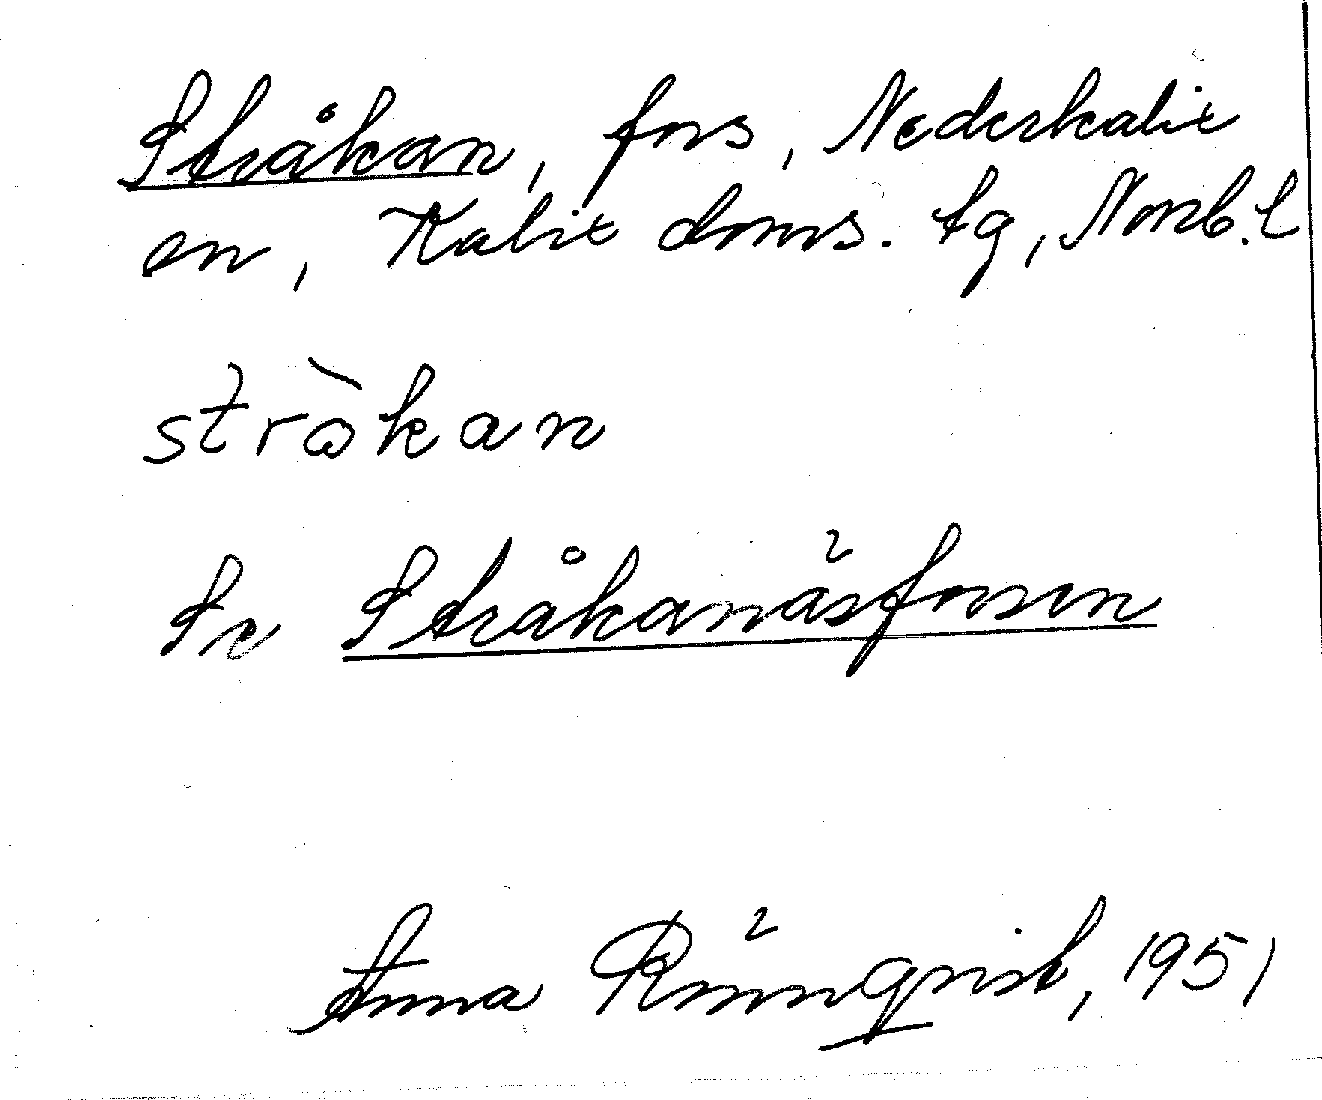 Stråkan, fors, Nederkalix
sn, Kalix doms. tg, Norrb. l
stròkan
Se Stråkanäsforsen
Anna Rönnqvist, 1951